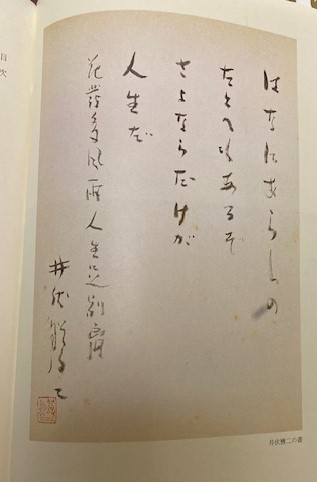 はなにあらしの
たとへもあるぞ
さよならだけが
人生だ
花發多風雨人生足別離
井伏鱒二
井伏鱒二の書
目次